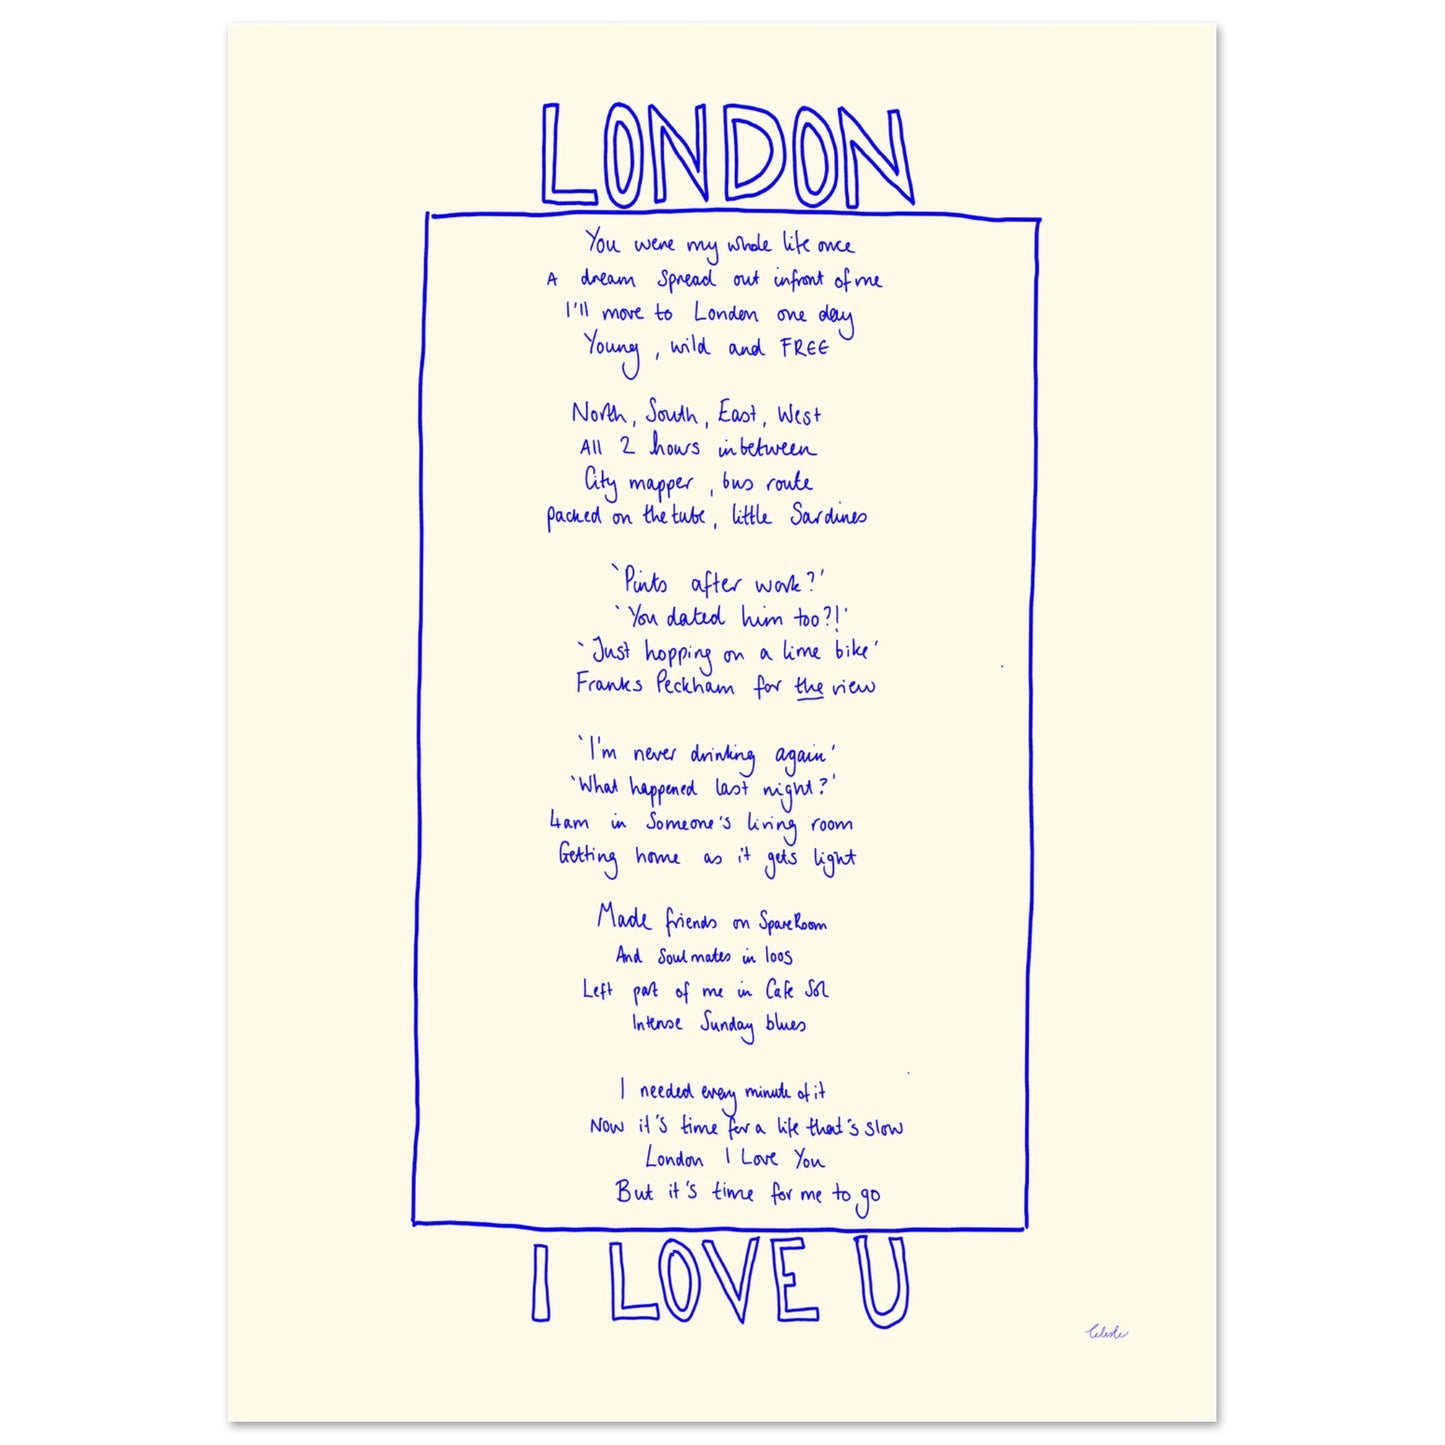 LONDON
You were my whole life once
A dream spread out infront of me
I'll move to London one day
Young, wild and FREE
North, South, East, West
All 2 hours inbetween
City mapper, bus route
packed on the tube, little Sardines
`Pints after work?'
`You dated him too?!'
`Just hopping on a lime bike'
Franks Peckham for the view
`I'm never drinking again'
`What happened last night?'
4am in Someone's living room
Getting home as it gets light
Made friends on SpareRoom
And Soulmates in loos
Left part of me in Cafe Sol
Intense Sunday blues
I needed every minute of it
Now it's time for a life that's slow
London I Love You
But it's time for me to go
I LOVE U
Celeste